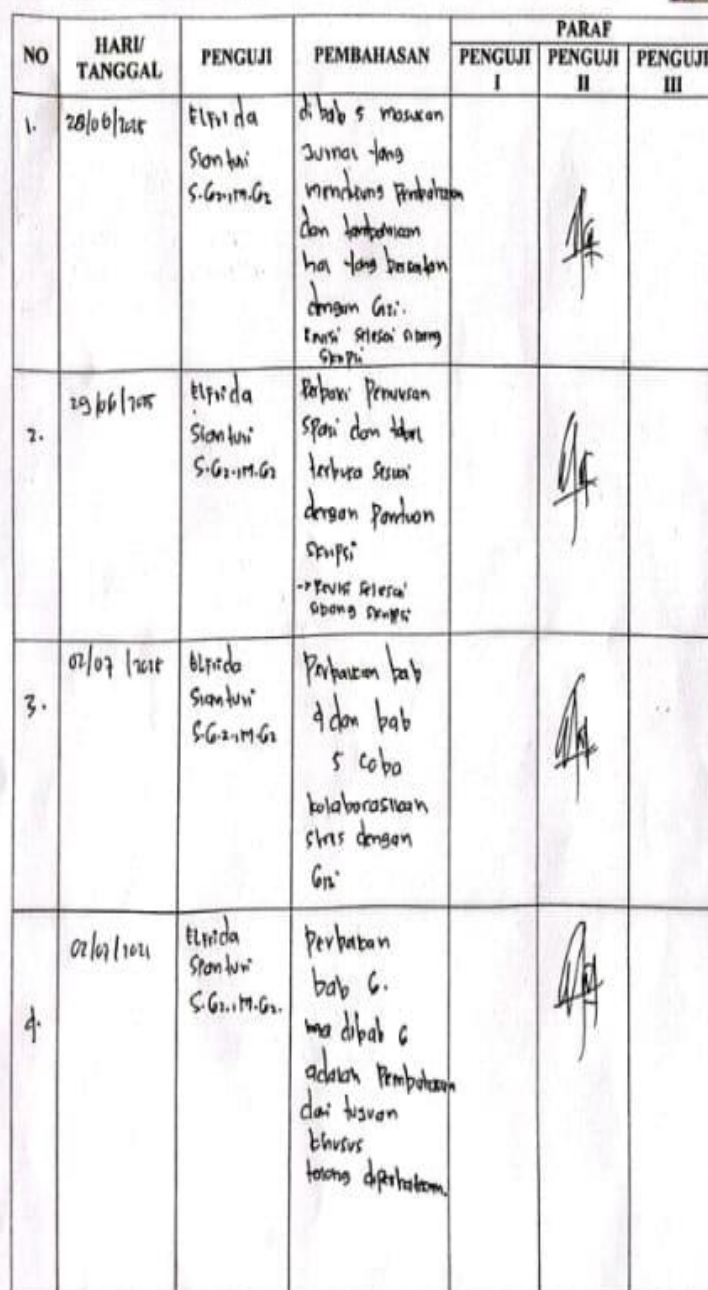 NO
HARI/
TANGGAL
PENGUJI
PEMBAHASAN
PARAF
PENGUJI
I
PENGUJI
II
PENGUJI
III
1.
28/06/2025
Elfrida
Sianturi
S.Gz.,M.Gz
di bab 5 masukan
Jurnal yang
mendukung Pembahasan
dan tambahkan
hal yang
dengan Gizi.
Revisi selesai sidang
Skripsi
2.
29/06/2025
Elfrida
Sianturi
S.Gz.,M.Gz
Perbaiki Penulisan
Spasi dan tabel
terbuka sesuai
dengan Panduan
Skripsi
→ Revisi selesai
sidang skripsi
3.
02/07/2025
Elfrida
Sianturi
S.Gz.,M.Gz
Perbaikan bab
4 dan bab
5 coba
kolaborasikan
stres dengan
Gizi
4.
02/07/
Elfrida
Sianturi
S.Gz.,M.Gz.
Perbaikan
bab 6.
dibab 6
adalah Pembahasan
dari tujuan
khusus
tolong diperhatikan.